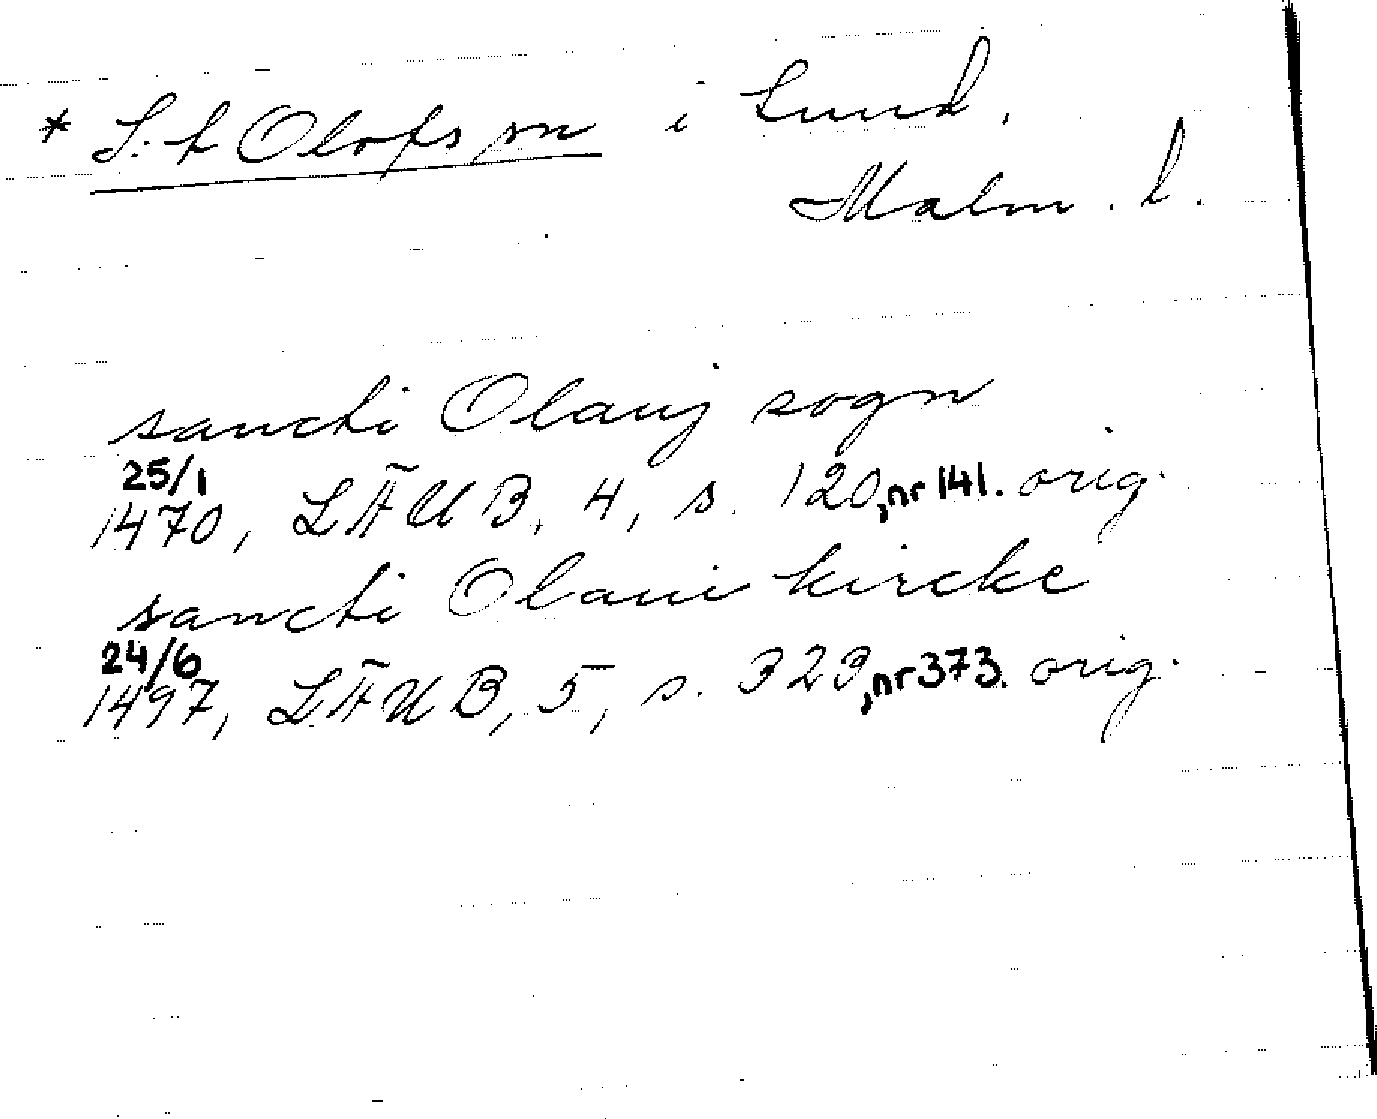 * S:t Olofs sn i Lund,
Malm. l.
sancti Olauj sogn
25/1
1470, LÄUB, 4, s. 120, nr 141. orig.
sancti Olaui kircke
24/6
1497, LÄUB, 5, s. 323, nr 373. orig.